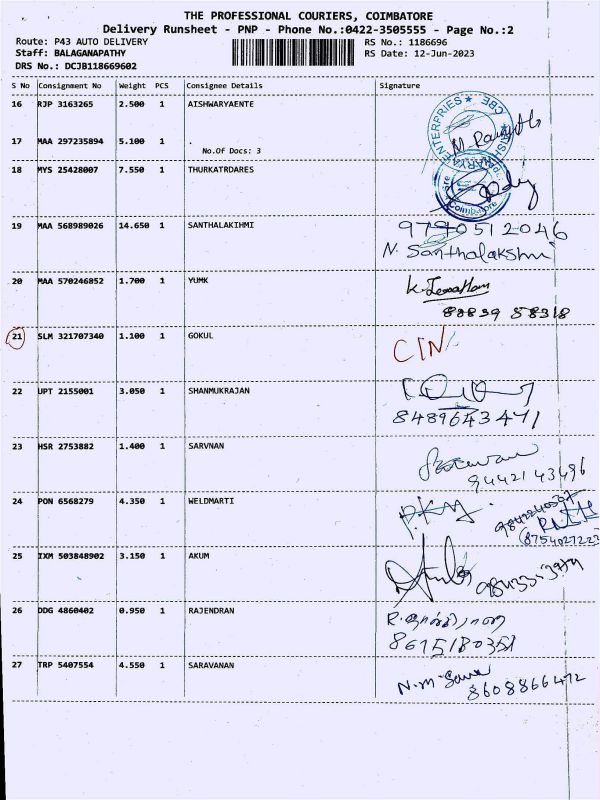 THE PROFESSIONAL COURIERS, COIMBATORE
Delivery Runsheet - PNP - Phone No.:0422-3505555 - Page No.:2
Route: P43 AUTO DELIVERY RS No.: 1186696
Staff: BALAGANAPATHY RS Date: 12-Jun-2023
DRS No.: DCJB118669602
S No Consignment No Weight PCS Consignee Details Signature
16 RJP 3163265 2.500 1 AISHWARYAENTE
17 MAA 297235894 5.100 1 .
No.Of Docs: 3
18 MYS 25428007 7.550 1 THURKATRDARES
19 MAA 568989026 14.650 1 SANTHALAKIHMI 9790512046
N. Santhalakshmi
20 MAA 570246852 1.700 1 YUMK
88839 58318
21 SLM 321707340 1.100 1 GOKUL CIN
22 UPT 2155001 3.050 1 SHANMUKRAJAN
8489643471
23 HSR 2753882 1.400 1 SARVNAN
9442143496
24 PON 6568279 4.350 1 WELDMARTI
25 IXM 503848902 3.150 1 AKUM
26 DDG 4860402 0.950 1 RAJENDRAN
8675180351
27 TRP 5407554 4.550 1 SARAVANAN
8608866472